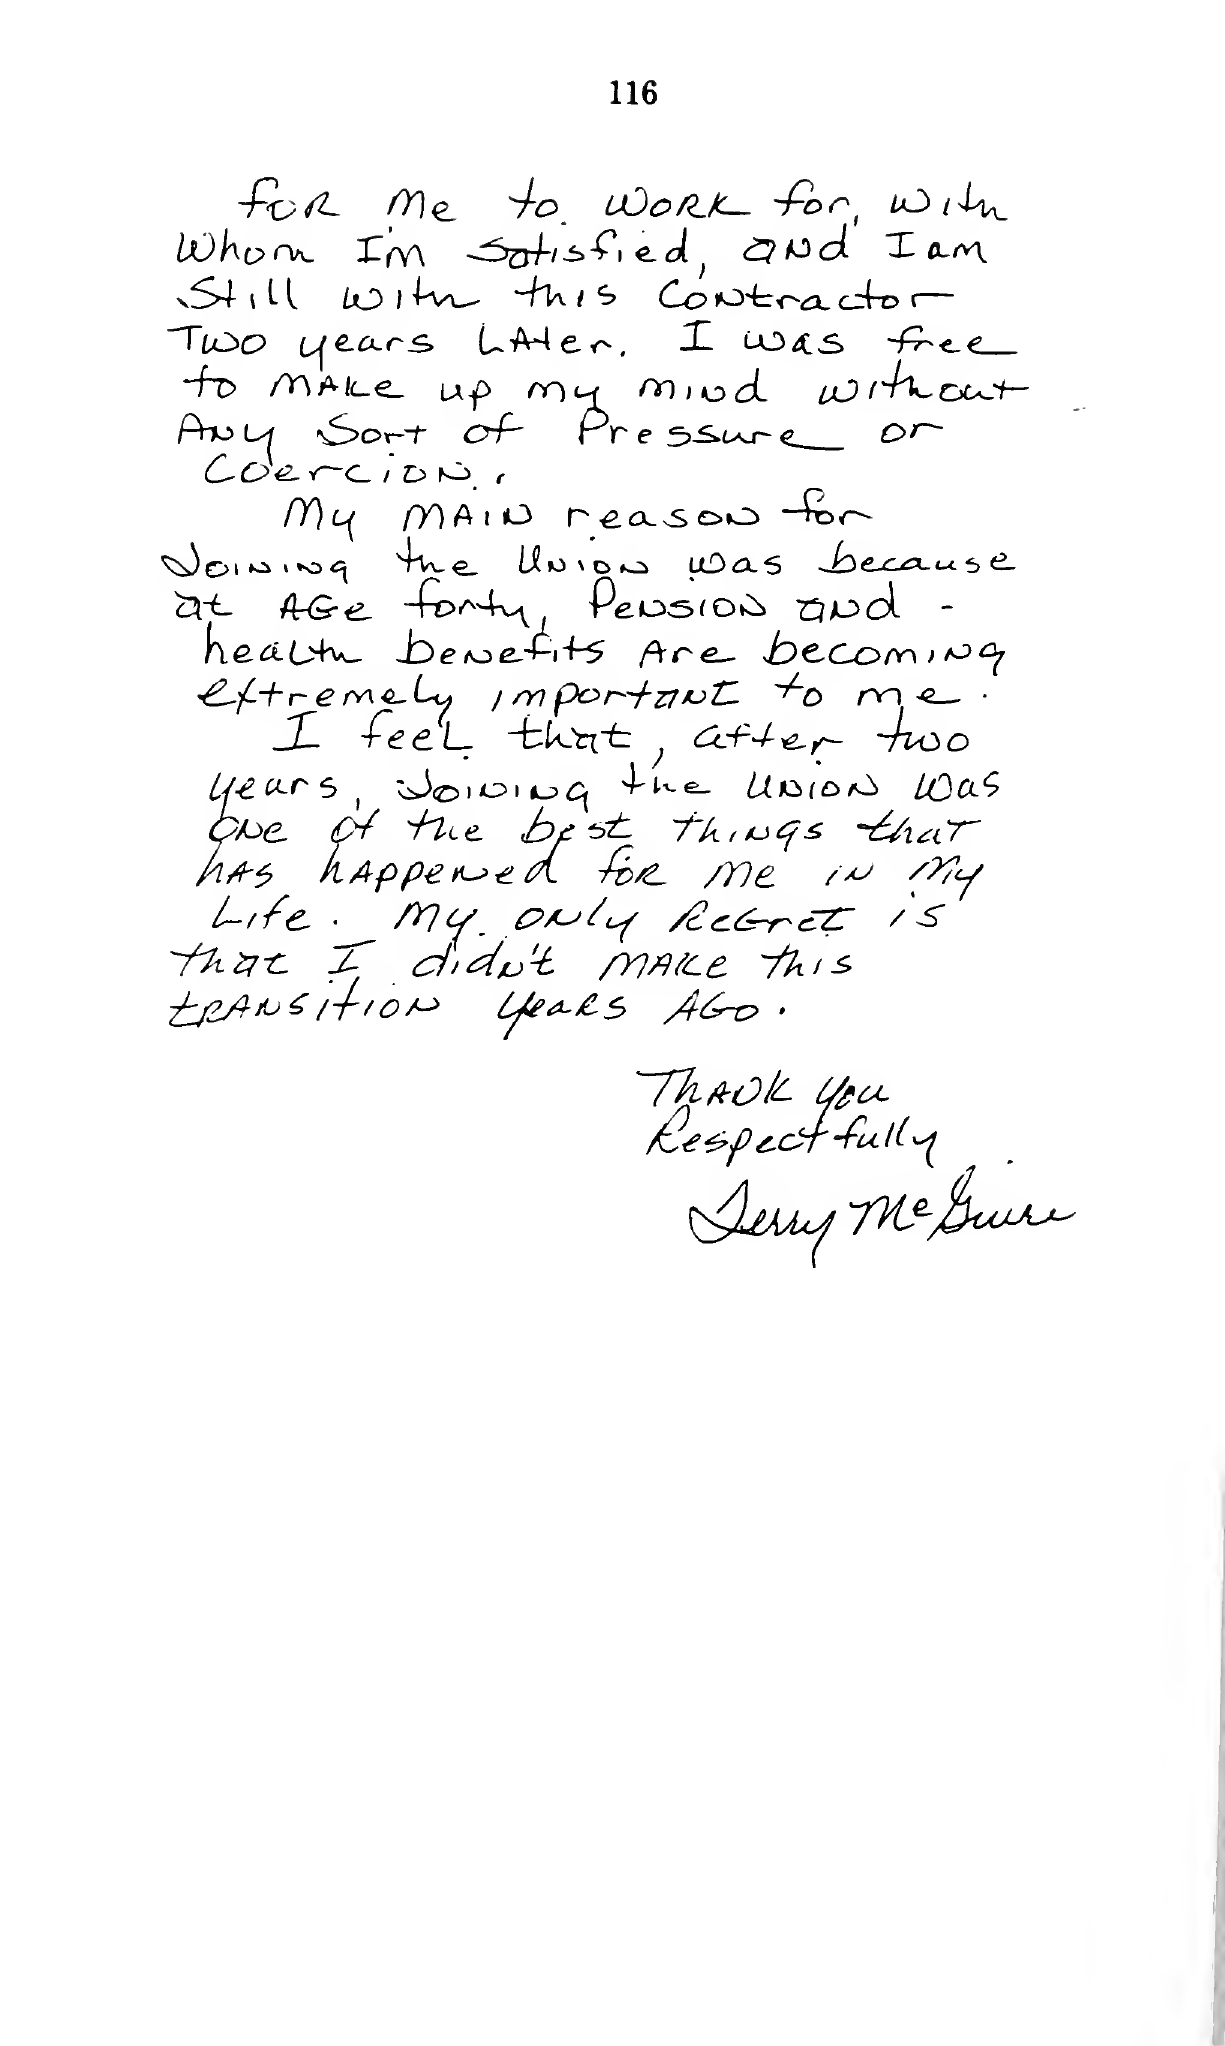 116
for me to work for, with
whom I'm satisfied, and I am
still with this contractor
Two years later. I was free
to make up my mind without
Any sort of Pressure or
coercion.
My main reason for
Joining the Union was because
at age forty, Pension and -
health benefits are becoming
extremely important to me.
I feel that, after two
years, Joining the union was
one of the best things that
has happened for me in my
Life. My only Regret is
that I didn't make this
transition years ago.
Thank you
Respectfully
Terry McGuire